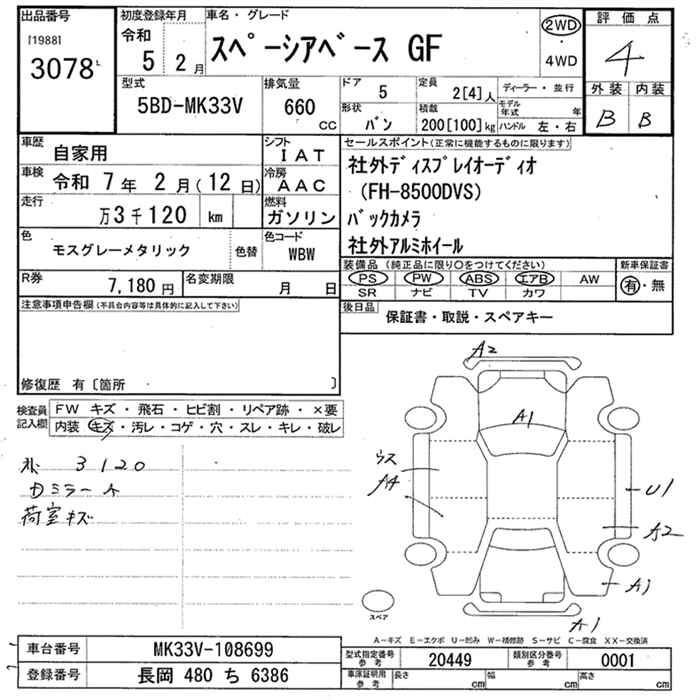 出品番号
[1988]
3078
初度登録年月
令和
5 2月
車名・グレード
スペーシアベース GF
2WD
・
4WD
評価点
4
外装 内装
B B
型式
5BD-MK33V
排気量
660
CC
ドア
5
定員
2[4]人
ディーラー・並行
モデル年式 年
形状
バン
積載
200[100]kg
ハンドル 左・右
車歴
自家用
シフト
IAT
車検
令和 7年 2月(12日)
冷房
AAC
走行
万3千120 km
燃料
ガソリン
色
モスグレーメタリック
色替
色コード
WBW
R券
7,180円
名変期限
月 日
セールスポイント(正常に機能するものに限ります)
社外ディスプレイオーディオ
(FH-8500DVS)
バックカメラ
社外アルミホイール
装備品(純正品に限り○をつけてください)
PS PW ABS エアB AW
SR ナビ TV カワ
新車保証書
有・無
後日品
保証書・取説・スペアキー
注意事項申告欄(不具合内容等は具体的に記入して下さい)
修復歴 有〔箇所 〕
検査員記入欄
FW キズ・飛石・ヒビ割・リペア跡・×要
内装 キズ・汚レ・コゲ・穴・スレ・キレ・破レ
3120
荷室キズ
A2
A1
ウス
A4
U1
A2
A1
A1
スペア
A-キズ E-エクボ U-凹み W-補修跡 S-サビ C-腐食 XX-交換済
車台番号
MK33V-108699
登録番号
長岡 480 ち 6386
型式指定番号
参考
20449
類別区分番号
参考
0001
車庫証明用
参考
長さ cm
幅 cm
高さ cm